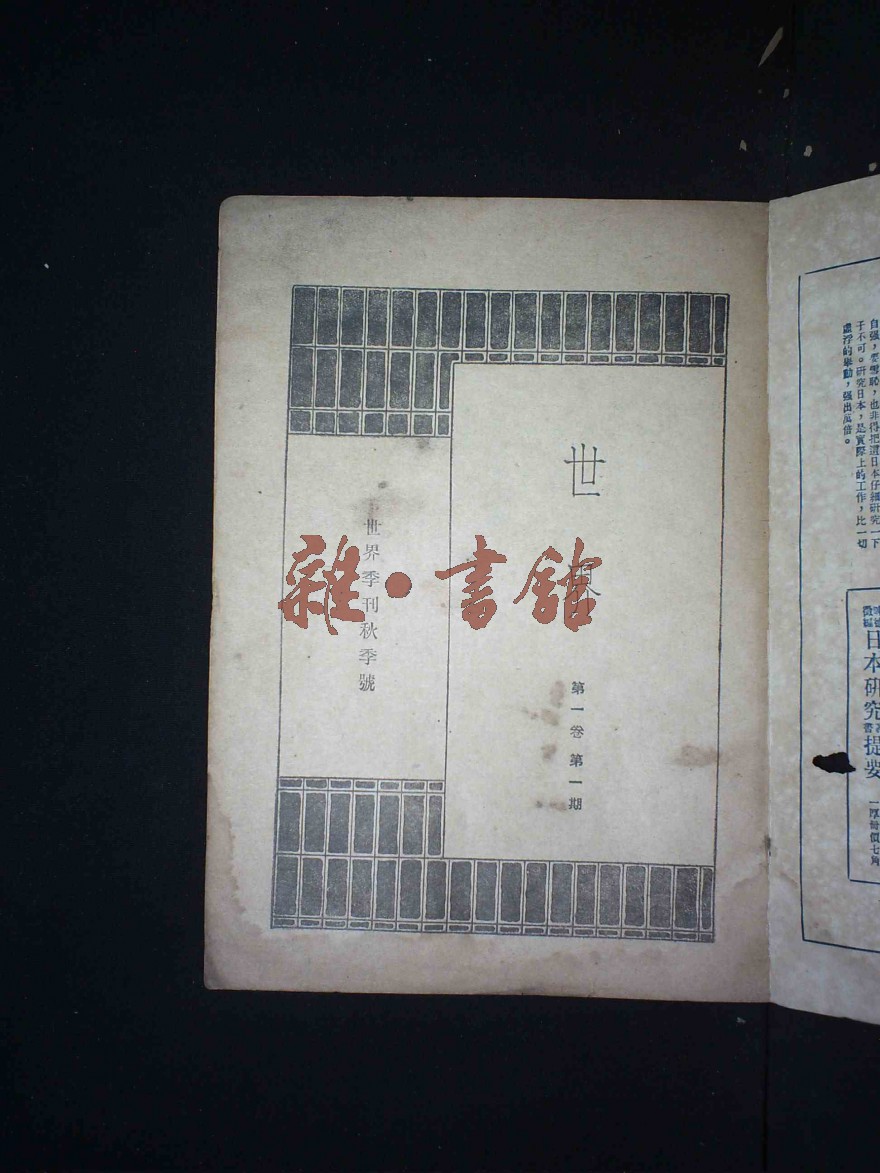 自强，要雪恥，也非得把這日本仔細研究一下
子不可。研究日本，是實際上的工作，比一切
虛浮的舉動，强出萬倍。
日本研究提要
世界
第一卷 第一期
世界季刊秋季號
雜·書館